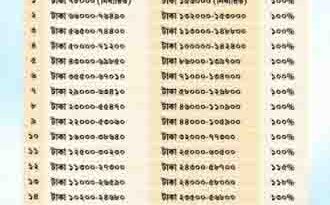 টাকা ৭৮০০০ (নির্ধারিত) টাকা ১৫৬০০০ (নির্ধারিত) ১০০%
২ টাকা ৬৬০০০-৭৬৪৯০ টাকা ১৩২০০০-১৫৩০০০ ১০০%
৩ টাকা ৫৬৫০০-৭৪৪০০ টাকা ১১৩০০০-১৪৮৮০০ ১০০%
৪ টাকা ৫০০০০-৭১২০০ টাকা ১০০০০০-১৪২৪০০ ১০০%
৫ টাকা ৪৩০০০-৬৯৮৫০ টাকা ৮৬০০০-১৩৯৭০০ ১০০%
৬ টাকা ৩৫৫০০-৬৭০১০ টাকা ৭১০০০-১৩৪০০০ ১০০%
৭ টাকা ২৯০০০-৬৩৪১০ টাকা ৫৮০০০-১২৬৮০০ ১০০%
৮ টাকা ২৩০০০-৫৫৪৭০ টাকা ৪৬০০০-১১০৯০০ ১০০%
৯ টাকা ২২০০০-৫৩০৬০ টাকা ১০০%
১০ টাকা ১৬০০০-৩৮৬৪০ টাকা ৩২০০০-৭৭৩০০ ১০০%
১১ টাকা ১২৫০০-৩০২৩০ টাকা ২৫০০০-৬০৫০০ ১০০%
১২ টাকা ১১৩০০-২৭৩০০ টাকা ২৪৩০০-৫৮৭০০ ১১৫%
টাকা ১১০০০-২৬৫৯০ টাকা ২৪০০০-৫৮০০০
১৪ টাকা ১০২০০-২৪৬৮০ টাকা ২৩৫০০-৫৬৮০০